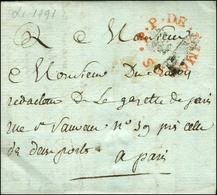 De 1791
P.P. DE
A Monsieur
A Monsieur
redacteur De Le gazette de paris
rue St Sauveur N° 39 près celle
de deux portes
a paris